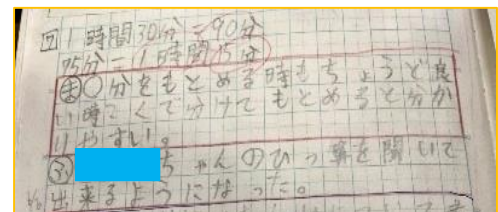 ⑦ 1時間30分=90分
75分=1時間15分
ま ○分をもとめる時もちょうど良
い時こくで分けてもとめると分か
りやすい。
ふ ちゃんのひっ算を聞いて
出来るようになった。